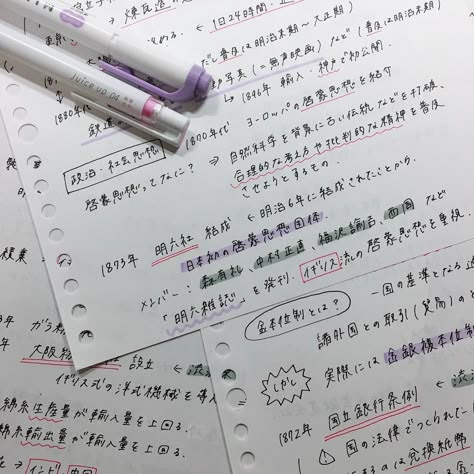 煉瓦造
1日24時間
普及は明治末期〜大正期)
(=無声映画) など (普及は明治末期
1896年 輸入、神戸で初公開.
Juice up 04
1880年代
鉄道
1870年代 ヨーロッパの啓蒙思想を紹介
政治・社会思想
啓蒙思想ってなに? ⇒ 自然科学を背景に古い伝統などを打破、
合理的な考え方や批判的な精神を普及
させようとするもの.
1873年 明六社 結成 ← 明治6年に結成されたことから.
日本初の啓蒙思想団体
メンバー: 森有礼、中村正直、福沢諭吉、西周 など
「明六雑誌」を発刊. イギリス流の啓蒙思想を重視
金本位制とは?
一国の基準となる
諸外国との取引 (貿易) の
しかし
実際には 金銀複本位制
1872年 国立銀行条例
国の法律でつくられた
兌換紙幣
産業
大阪紡 設立
イギリス式の洋式機械を導入
綿糸生産量が輸入量を上回る.
綿糸輸出量が輸入量を上回る.
インド 中国